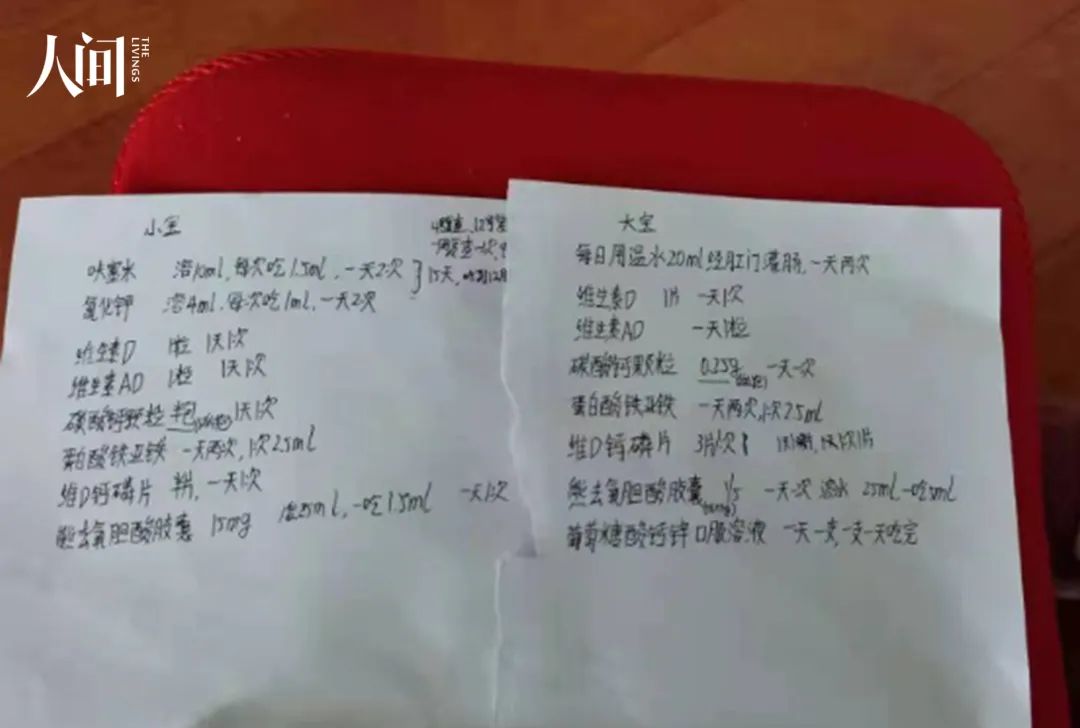 人间
THE LIVINGS
小宝
呋塞米 溶10ml,每次吃1.5ml,一天2次
氯化钾 溶4ml,每次吃1ml,一天2次
15天,
维生素D 1粒 1天1次
维生素AD 1粒 1天1次
碳酸钙颗粒 半包 1天1次
蛋白酸铁亚铁 一天两次,1次2.5ml
维D钙磷片 半片,一天1次
熊去氧胆酸胶囊 15mg 溶25ml,一吃1.5ml 一天1次
大宝
每日用温水20ml经肛门灌肠,一天两次
维生素D 1片 一天1次
维生素AD 一天1粒
碳酸钙颗粒 0.25g 一天一次
蛋白酸铁亚铁 一天两次,1次2.5ml
维D钙磷片 3片/次 1次1片
熊去氧胆酸胶囊 1/5 一天一次 溶水 25ml一吃5ml
葡萄糖酸钙锌口服溶液 一天一支,一支一天吃完